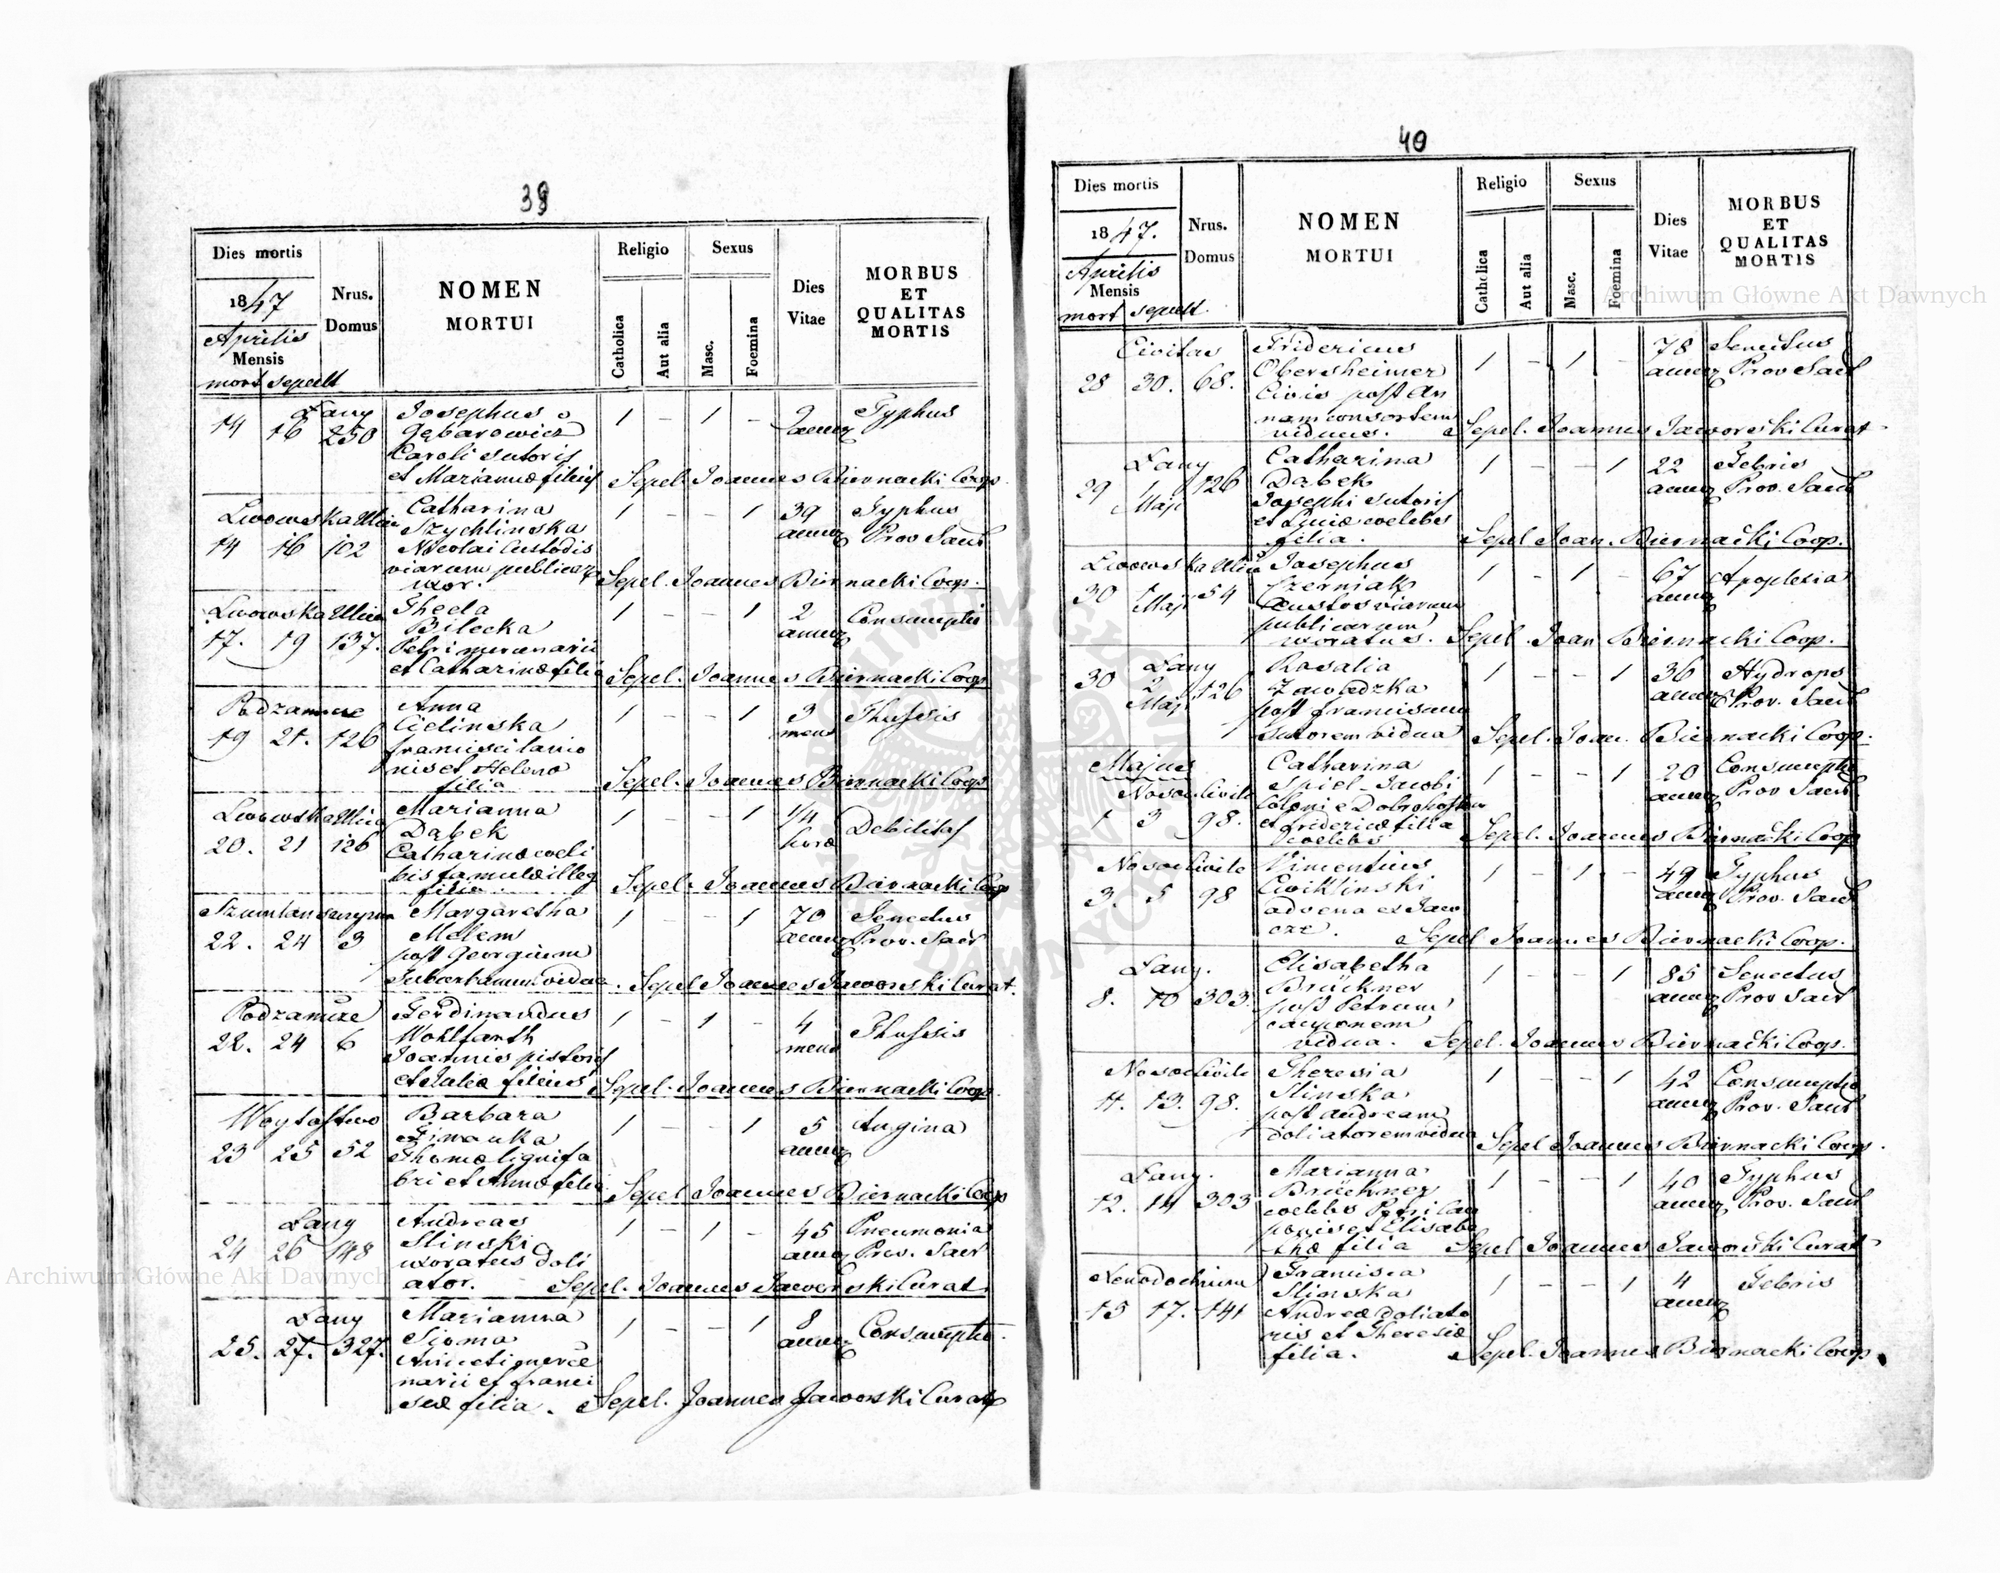 39
Dies mortis
1847
Aprilis
Mensis
mort sepult
Nrus.
Domus
NOMEN
MORTUI
Religio
Catholica
Aut alia
Sexus
Masc.
Foemina
Dies
Vitae
MORBUS
ET
QUALITAS
MORTIS
Łany Josephus 1 - 1 - 2 Typhus
14 16 250 Gębarowicz annor
Caroli sutoris
et Mariannæ filius Sepel. Joannes Biernacki Coop.
Lwowska Ulica Catharina 1 - - 1 39 Typhus
14 16 102 Szychlinska annor Prov. Sacr
Nicolai Custodis
viarum publicar
uxor. Sepel. Joannes Biernacki Coop.
Lwowska Ulica Thecla 1 - - 1 2 Consumptio
17. 19 137. Bilecka annor
Petri mercenarii
et Catharinæ filia Sepel. Joannes Biernacki Coop
Podzamcze Anna 1 - - 1 3 Thussis
19 21. 126 Cielinska mens
Francisci lanio
nis et Helenæ
filia Sepel. Joannes Biernacki Coop
Lwowska Ulica Marianna 1 - - 1 1/4 Debilitas
20. 21 126 Dąbek horæ
Catharinæ coeli
bis famulæ illeg
filia. Sepel. Joannes Biernacki Coop
Margaretha 1 - - 1 70 Senectus
22. 24 3 Melem annor Prov. Sacr
post Georgium
viduа. Sepel Joannes Jaworski Curat.
Podzamcze Ferdinandus 1 - 1 - 4 Thussis
22. 24 6 Wohlfarth mens
Joannis pistoris
et Juliæ filius Sepel. Joannes Biernacki Coop.
Woytostwo Barbara 1 - - 1 5 Angina
23 25 52 annor
Thomæ lignifa
bri et Annæ filia Sepel Joannes Biernacki Coop
Łany Andreas 1 - 1 - 45 Pneumonia
24 26 148 Slinski annor Prov. Sacr
uxoratus doli
ator. Sepel. Joannes Jaworski Curat.
Łany Marianna 1 - - 1 8 Consumptio.
25. 27. 327. annor
merce
narii et Franci
scæ filia. Sepel. Joannes Jaworski Curat
40
Dies mortis
1847.
Aprilis
Mensis
mort sepult.
Nrus.
Domus
NOMEN
MORTUI
Religio
Catholica
Aut alia
Sexus
Masc.
Foemina
Dies
Vitae
MORBUS
ET
QUALITAS
MORTIS
Civitas Fridericus 1 - 1 - 78 Senectus
28 30. 68. Obersheimer annor Prov Sacr
Civis post An
nam consortem
viduus. Sepel. Joannes Jaworski Curat.
Łany Catharina 1 - - 1 22 Febris
29 1 Maji 126 Dąbek annor Prov. Sacr
Josephi sutoris
et coelebs
filia. Sepel Joan. Biernacki Coop.
Lwowska Ulica Josephus 1 - 1 - 67 Apoplexia
30 1 Maji 54 Czerniak annor
Custos viarum
publicarum
uxoratus. Sepel. Joan Biernacki Coop.
Łany Rosalia 1 - - 1 36 Hydrops
30 2 Maji 126 Zawadzka annor Prov. Sacr
post Franciscum
sutorem vidua Sepel. Joan. Biernacki Coop.
Majus
Novae Civit Catharina 1 - - 1 20 Consumptio
1 3 98. Spiel Jacobi annor Prov Sacr
Coloni e
et Fridericæ filia
coelebs Sepel. Joannes Biernacki Coop
Novae Civit Vincentius 1 - 1 - 49 Typhus
3. 5 98 Cwiklinski annor Prov. Sacr
advena ex Jawo
rze. Sepel Joannes Biernacki Coop.
Łany. Elisabetha 1 - - 1 85 Senectus
8. 10 303. Brückner annor Prov Sacr
post Petrum
cauponem
vidua. Sepel. Joannes Biernacki Coop.
Novae Civit Theresia 1 - - 1 42 Consumptio
11. 13. 98. Slinska annor Prov. Sacr
post Andream
doliatorem vidua Sepel Joannes Biernacki Coop.
Łany. Marianna 1 - - 1 40 Typhus
12. 14 303 Brückner annor Prov. Sacr
coelebs Petri cau
ponis et Elisabe
thæ filia Sepel Joannes Jaworski Curat.
Xenodochium Francisca 1 - - 1 4 Febris
15 17. 141 Slinska annor
Andreæ doliato
ris et Theresiæ
filia. Sepel. Joannes Biernacki Coop.
Archiwum Główne Akt Dawnych
Archiwum Główne Akt Dawnych
ARCHIWUM GŁÓWNE AKT DAWNYCH